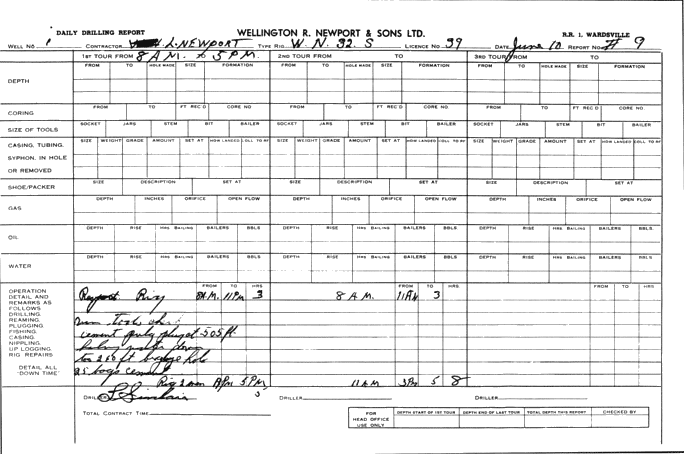 DAILY DRILLING REPORT WELLINGTON R. NEWPORT & SONS LTD. R.R. 1. WARDSVILLE
WELL NO. 1 CONTRACTOR L. NEWPORT TYPE RIG W. N. 32. S LICENCE NO 99 DATE June 10 REPORT NO # 9
1ST TOUR FROM 8 A.M. to 5 P.M. 2ND TOUR FROM TO 3RD TOUR FROM TO
DEPTH
FROM TO HOLE MADE SIZE FORMATION FROM TO HOLE MADE SIZE FORMATION FROM TO HOLE MADE SIZE FORMATION
CORING
FROM TO FT REC'D CORE NO. FROM TO FT REC'D CORE NO. FROM TO FT REC'D CORE NO
SIZE OF TOOLS
SOCKET JARS STEM BIT BAILER SOCKET JARS STEM BIT BAILER SOCKET JARS STEM BIT BAILER
CASING, TUBING,
SYPHON, IN HOLE
OR REMOVED
SIZE WEIGHT GRADE AMOUNT SET AT HOW LANDED COLL TO RF SIZE WEIGHT GRADE AMOUNT SET AT HOW LANDED COLL TO RF SIZE WEIGHT GRADE AMOUNT SET AT HOW LANDED COLL TO RF
SHOE/PACKER
SIZE DESCRIPTION SET AT SIZE DESCRIPTION SET AT SIZE DESCRIPTION SET AT
GAS
DEPTH INCHES ORIFICE OPEN FLOW DEPTH INCHES ORIFICE OPEN FLOW DEPTH INCHES ORIFICE OPEN FLOW
OIL
DEPTH RISE HRS BAILING BAILERS BBLS DEPTH RISE HRS BAILING BAILERS BBLS DEPTH RISE HRS BAILING BAILERS BBLS.
WATER
DEPTH RISE HRS BAILING BAILERS BBLS DEPTH RISE HRS BAILING BAILERS BBLS DEPTH RISE HRS BAILING BAILERS BBLS
OPERATION
DETAIL AND
REMARKS AS
FOLLOWS
DRILLING.
REAMING.
PLUGGING.
FISHING.
CASING.
NIPPLING.
UP LOGGING
RIG REPAIRS
DETAIL ALL
"DOWN TIME"
FROM TO HRS FROM TO HRS FROM TO HRS
Report Rig 8 A.M. 11 PM 3 8 A.M. 11 AM 3
cement plug at 505 ft.
to 250 ft hole
25 bags cement
Rig 2 men PM 5 PM 3 11 AM 3 PM 5 8
DRILLER Sinclair DRILLER DRILLER
TOTAL CONTRACT TIME
FOR
HEAD OFFICE
USE ONLY
DEPTH START OF 1ST TOUR DEPTH END OF LAST TOUR TOTAL DEPTH THIS REPORT CHECKED BY